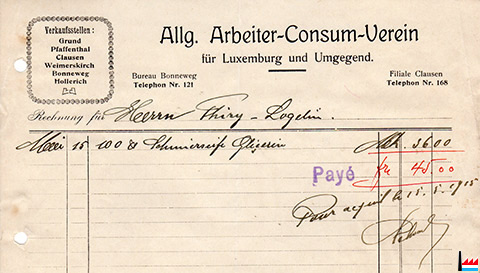 Verkaufsstellen:
Grund
Pfaffenthal
Clausen
Weimerskirch
Bonneweg
Hollerich
Allg. Arbeiter-Consum-Verein
für Luxemburg und Umgegend.
Bureau Bonneweg
Telephon Nr. 121
Filiale Clausen
Telephon Nr. 168
Rechnung für Herrn Thiry-Logelin.
Mai 15 100 Schmierseife Glyzerin Mk. 36 00
Payé frs 45.00
Pour acquit le 15.5.1915